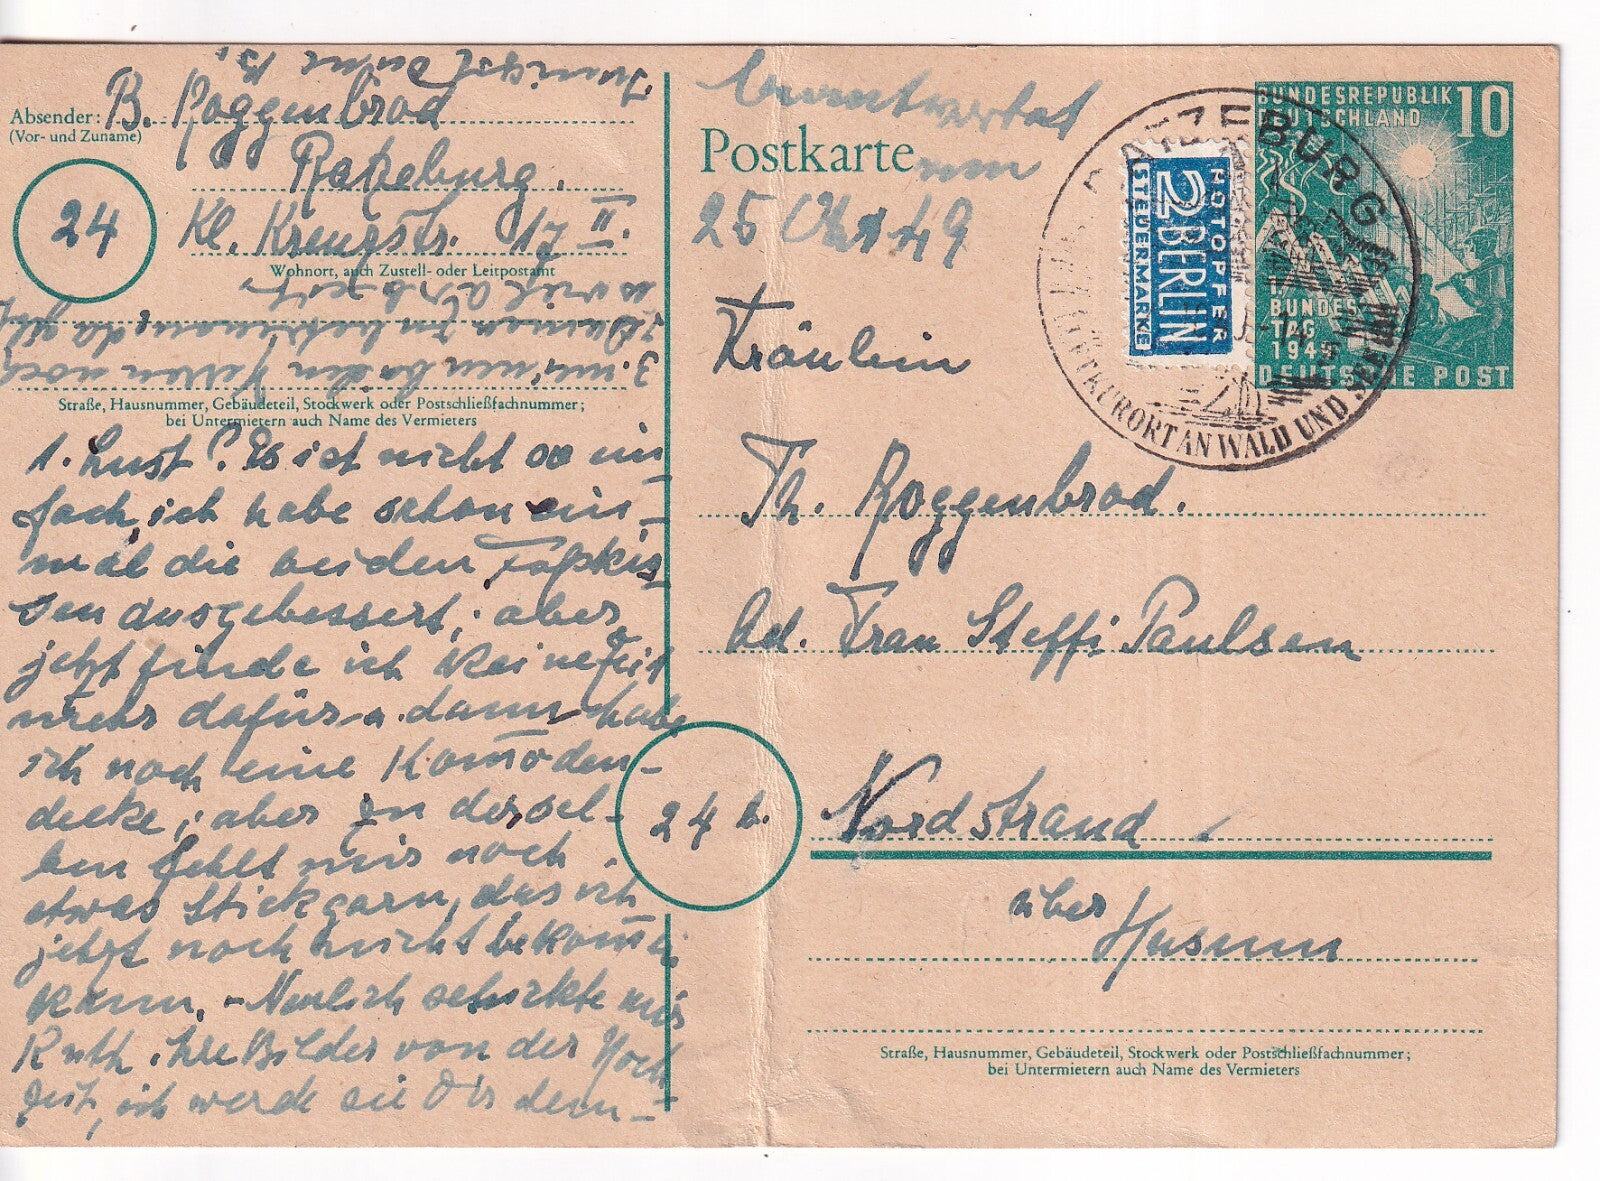 Absender: B. Roggenbrod
(Vor- und Zuname)
Ratzeburg.
24
Kl. Kreuzstr. 17 II.
Wohnort, auch Zustell- oder Leitpostamt
Straße, Hausnummer, Gebäudeteil, Stockwerk oder Postschließfachnummer;
bei Untermietern auch Name des Vermieters
1. Lust? Es ist nicht so ein
fach, ich habe schon ein-
mal die beiden Fußkis
sen ausgebessert; aber
jetzt finde ich keine Zeit
mehr dafür u. dann habe
ich noch eine Kom̅oden-
decke; aber zu dersel-
ben fehlt mir noch
etwas Stickgarn, das ich
jetzt noch nicht bekom̅en
kann. - Neulich schickte mir
Ruth ihre Bilder von der Hoch
zeit, ich werde sie Dir dem-
Beantwortet
Postkarte
am
25 Okt 49
Fräulein
Th. Roggenbrod.
Ad. Frau Steffi Paulsen
24 b.
Nordstrand
über Husum
Straße, Hausnummer, Gebäudeteil, Stockwerk oder Postschließfachnummer;
bei Untermietern auch Name des Vermieters
RATZEBURG
LUFTKURORT AN WALD UND SEE
NOTOPFER
2 BERLIN
STEUERMARKE
BUNDESREPUBLIK 10
DEUTSCHLAND
BUNDES
TAG
1949
DEUTSCHE POST